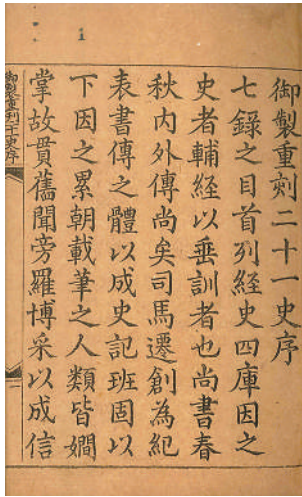 御製重刻二十一史序
七錄之目首列經史四庫因之
史者輔經以垂訓者也尚書春
秋內外傳尚矣司馬遷創為紀
表書傳之體以成史記班固以
下因之累朝載筆之人類皆嫺
掌故貫舊聞旁羅博采以成信
御製重刊二十一史序
一